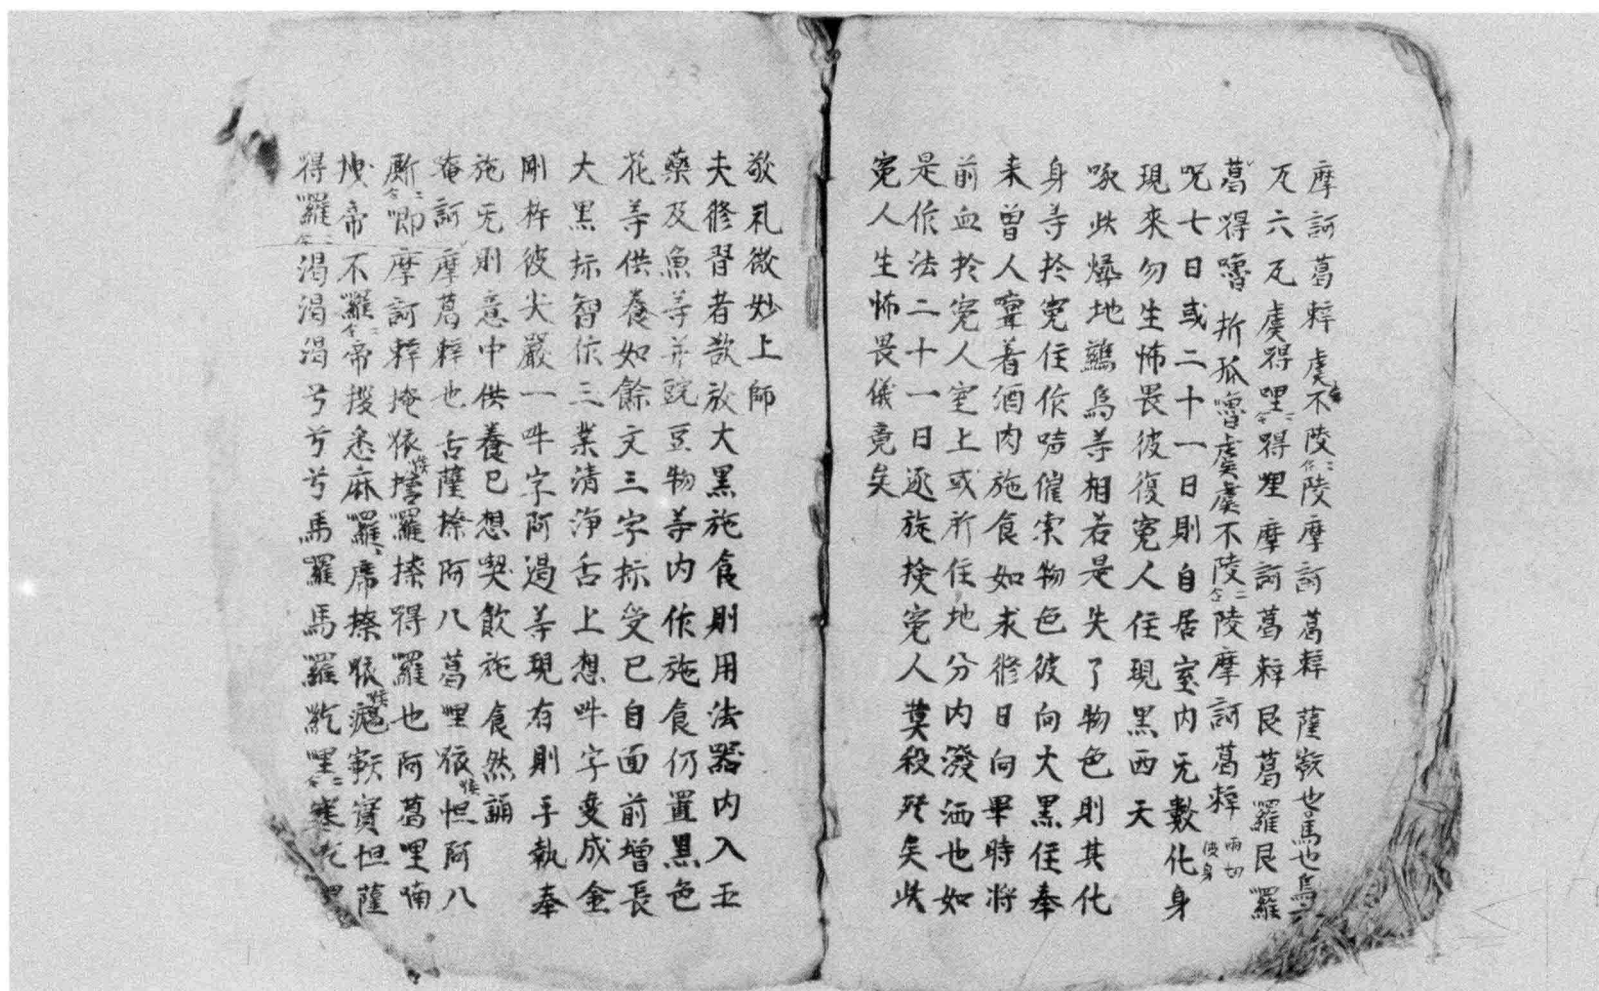 摩訶葛辢虞不陵二合陵摩訶葛辢薩嚩也馬也馬
瓦六瓦虞得哩二合得哩摩訶葛辢艮葛羅艮羅
葛得嚕折孤嚕虞虞不陵二合陵摩訶葛辢
呪七日或二十一日則自居室内无數化身
現來勿生怖畏彼復寃人住現黑西天
啄此爆地鵄烏等相若是失了物色則其化
身等扵寃住作啨催索物色彼向大黑住奉
来曽人㝧着酒肉施食如求修日向畢時將
前血扵寃人室上或所住地分内潑洒也如
是作法二十一日逐旋撿寃人莫殺死矣此
寃人生怖畏儀竟矣
敬礼微妙上師
夫修習者欲放大黑施食則用法器内入五
藥及魚等并豌豆物等内作施食仍置黑色
花等供養如餘文三字标受已自面前增長
大黑标智作三業清淨舌上想吽字变成金
剛杵彼尖嚴一吽字阿遏等現有則手執奉
施无則意中供養已想喫飲施食然誦
唵訶摩葛辢也舌薩捺阿八葛哩𤝗怛阿八
厮二合唧摩訶辢唵𤝗捨羅捺得羅也阿葛哩喃
拽帝不羅二合帝㧞悉麻羅厮捺𤝗嚩實怛薩
得羅二合渴渴渴兮兮兮馬羅馬羅訖哩二合